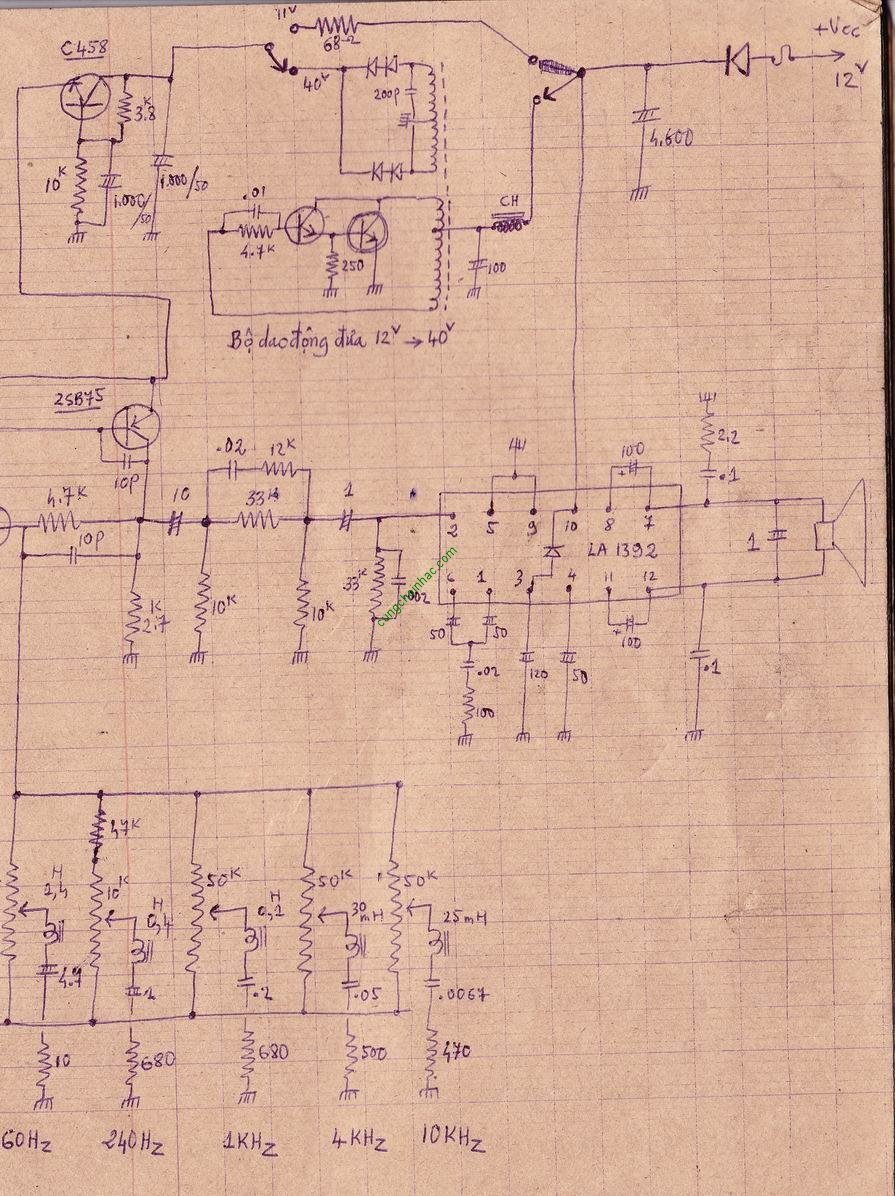 11V
+Vcc
C458
68Ω
40V
12V
3.8K
200P
4.600
10K
1.000/50
1.000/50
.01
CH
4.7K
250
100
Bộ dao động đưa 12V → 40V
2SB75
10P
.02
12K
100
2.2
.1
4.7K
10
33K
1
10P
2
5
9
10
8
7
LA 1392
1
6
1
3
4
11
12
K
2.7
10K
10K
33K
.002
50
50
120
50
100
.02
100
.1
cungchoinhac.com
47K
H
10K
H
50K
H
50K
30
mH
50K
25mH
4.7
.2
.05
.0067
10
680
680
500
470
60Hz
240Hz
1KHz
4KHz
10KHz